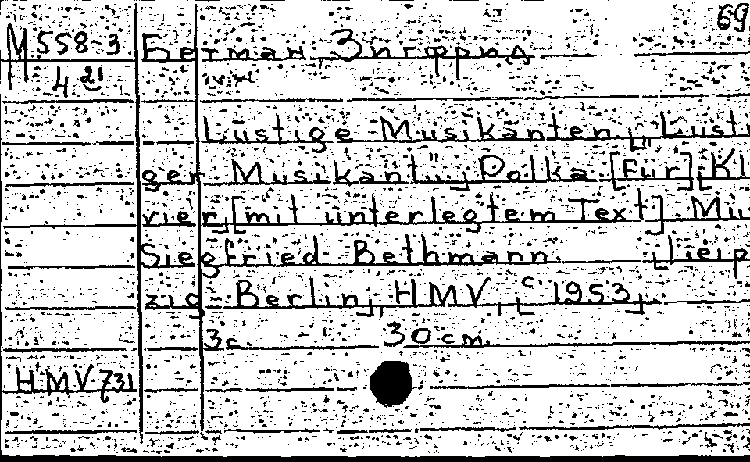 69
М 558-3 Бетман, Зигфрид
4 21
Lustige Musikanten. „Lusti
ger Musikant", Polka. [Für] Kl
vier [mit unterlegtem Text]. Mu
Siegfried Bethmann. Leip
zig Berlin, HMV, c 1953.
3 с. 30 cm.
HMV 731